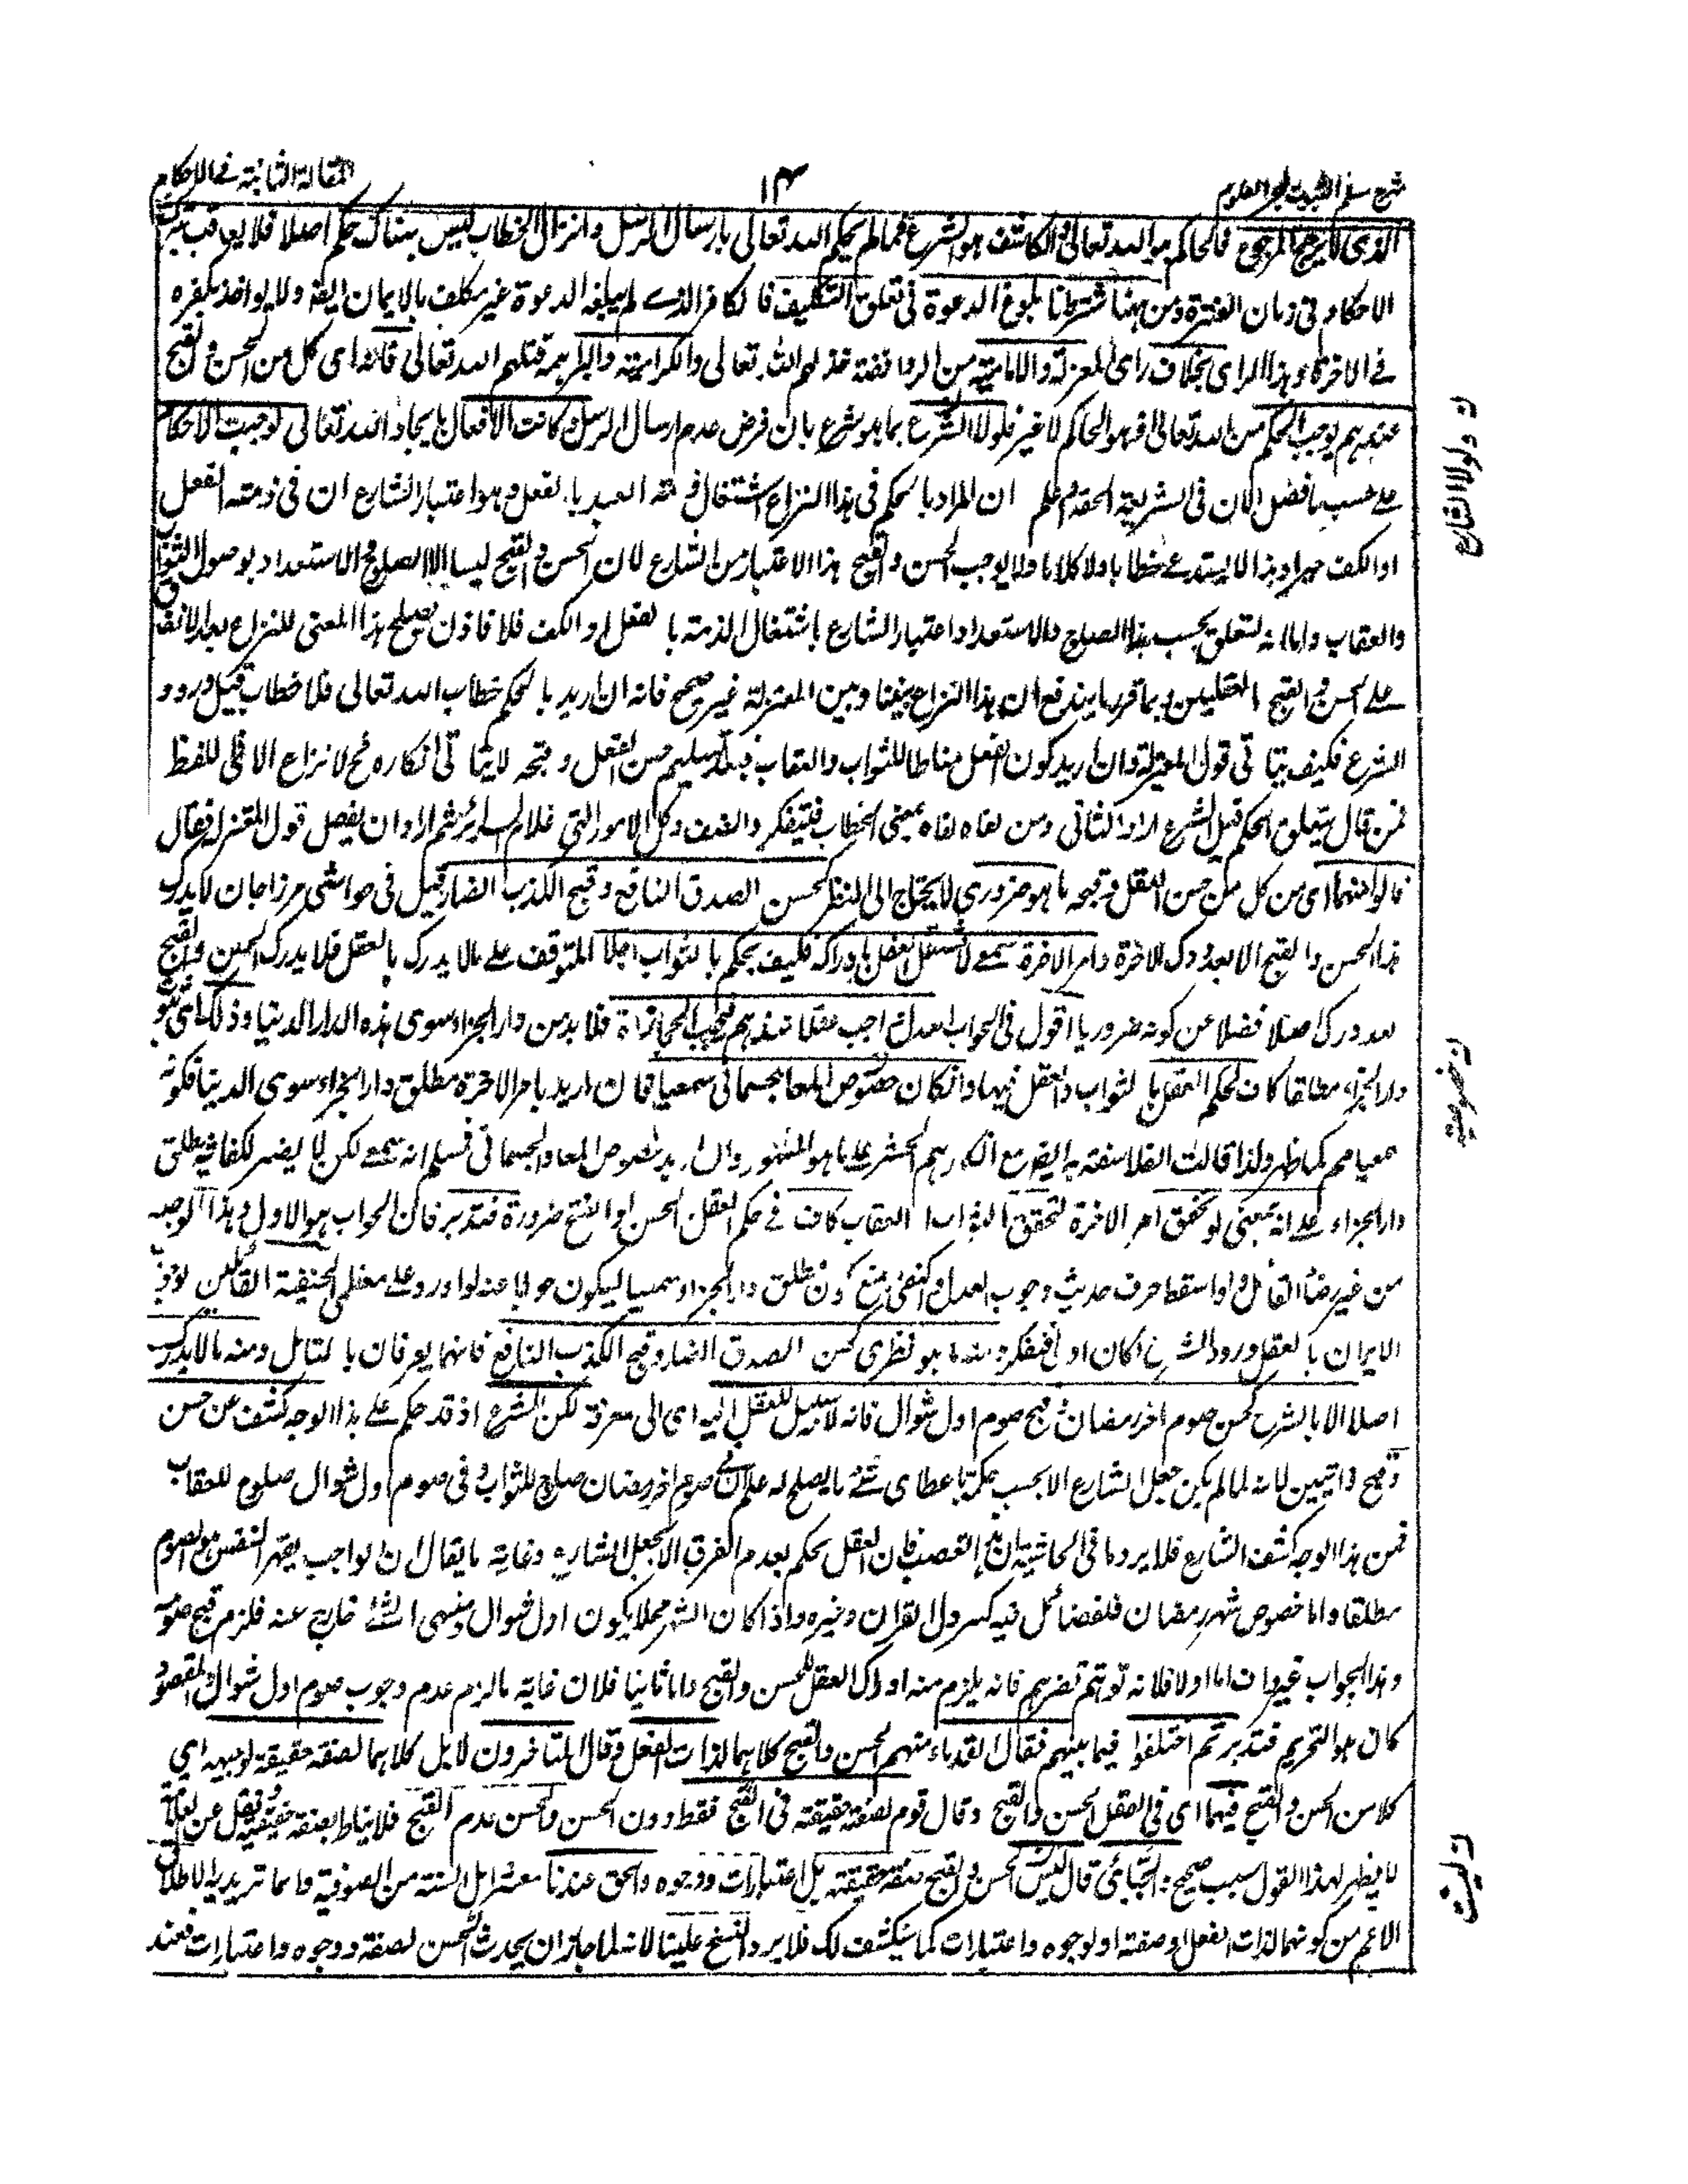 شرح مسلم الثبوت لبحر العلوم
١٤
المقالة الثانية فى الاحكام
الذى لا يرجح المرجوح فالحاكم هو الله تعالى والكاشف هو الشرع فما لم يحكم الله تعالى بارسال الرسل وانزال الخطاب ليس هناك حكم اصلا فلا يعاقب بترك
الاحكام فى زمان الفترة ومن ههنا اشترطنا بلوغ الدعوة فى تعلق التكليف فالكافر الذى لم يبلغه الدعوة غير مكلف بالايمان ايضا ولا يواخذ بكفره
فى الاخرة وهذا الراى بخلاف راى المعتزلة والامامية من الروافضة خذلهم الله تعالى والكرامية والبراهمة قتلهم الله تعالى فانه اى كل من الحسن والقبح
عندهم يوجب الحكم من الله تعالى فهو الحاكم لا غير فلولا الشرع بما هو شرع بان فرض عدم ارسال الرسل وكانت الافعال بايجاد الله تعالى لوجبت الاحكام
على حسب ما فصل الان فى الشريعة الحقة واعلم ان المراد بالحكم فى هذا النزاع اشتغال ذمة العبد بالفعل وهو اعتبار الشارع ان فى ذمته الفعل
او الكف جبرا وهذا لا يستدعى خطابا ولا كلاما ولا يوجب الحسن والقبح هذا الاعتبار من الشارع لان الحسن والقبح ليسا الا الصلوح والاستعداد بوصول الثواب
والعقاب واما انه لتعلق بحسب هذا الصلوح والاستعداد اعتبار الشارع باشتغال الذمة بالفعل او الكف فلا فاذن يصلح هذا المعنى للنزاع بعد الاتفاق
على الحسن والقبح العقليين وبما قررنا يندفع ان هذا النزاع بيننا وبين المعتزلة غير صحيح فانه ان اريد بالحكم خطاب الله تعالى فلا خطاب قبل ورود
الشرع فكيف يتاتى قول المعتزلة وان اريد كون الفعل مناطا للثواب والعقاب فبعد تسليم حسن الفعل وقبحه لا يتاتى انكاره فح لا نزاع الا فى اللفظ
فمن قال بتعلق الحكم قبل الشرع اراد الثانى ومن نفاه نفاه بمعنى الخطاب فليتفكر والضف وكل الامور التى علام السرائر ثم اراد ان يفصل قول المعتزلة فقال
قالوا منهما اى من كل من حسن الفعل وقبحه ما هو ضرورى لا يحتاج الى النظر كحسن الصدق النافع وقبح الكذب الضار قيل فى حواشى مرزاجان لا يدرك
هذا الحسن والقبح الا بعد درك الاخرة وامر الاخرة سمعى لا يستقل العقل بادراكه فكيف يحكم بالثواب اجلا المتوقف على ما لا يدرك بالعقل فلا يدرك الحسن والقبح
بعد درك اصلا فضلا عن كونه ضروريا اقول فى الجواب العدل واجب عقلا عندهم فيجب المجازاة فلا بد من دار الجزاء سوى هذه الدار الدنيا وذلك اى ثبوت
دار الجزاء مطلقا كاف لحكم العقل بالثواب والعقل فيها وان كان خصوص المعاد الجسمانى سمعيا فان اريد بامر الاخرة مطلق دار الجزاء سوى الدنيا فكونه
سمعيا مم كما ظهر ولذا قالت الفلاسفة به ايضا مع انكارهم الحشر على ما هو المشهور وان اريد خصوص المعاد الجسمانى فسلم انه سمعى لكن لا يضر لكفاية مطلق
دار الجزاء على انه بمعنى لو تحقق امر الاخرة لتحقق الثواب او العقاب كاف فى حكم العقل بالحسن او القبح ضرورة فتدبر فان الجواب هو الاول وهذا الوجه
من غير رضا القائل ولو اسقط حرف حديث وجوب العدل واكتفى بمنع كون مطلق دار الجزاء سمعيا ليكون جوابا عنه لو اورد على معظم الحنفية القائلين بوجوب
الايمان بالعقل ورود الشرع كان اولى فتفكر ومنه ما هو نظرى كحسن الصدق الضار وقبح الكذب النافع فانهما يعرفان بالتامل ومنه ما لا يدرك
اصلا الا بالشرع كحسن صوم اخر رمضان وقبح صوم اول شوال فانه لا سبيل للعقل اليه اى الى معرفة لكن الشرع اذ قد حكم على هذا الوجه كشف عن حسن
وقبح ذاتيين لانه لما لم يكن جعل الشارع الا بحسب حكمته باعطاء شئ ما يصلح له علم ان فى صوم اخر رمضان صلوح للثواب وفى صوم اول شوال صلوح للعقاب
فمن هذا الوجه كشف الشارع فلا يرد ما فى الحاشية ان مع التعصب فان العقل يحكم بعدم الفرق الا بجعل الشارع وغاية ما يقال ان الواجب يقهر النفس مع الصوم
مطلقا واما خصوص شهر رمضان فلفضائل فيه كنزول القران وغيره واذا كان الشهر محلا يكون اول شوال منتهى الشئ خارج عنه فلزم قبح صومه
وهذا الجواب غير واف اما اولا فلانه لو تم تضرهم فانه يلزم منه ادراك العقل للحسن والقبح واما ثانيا فلان غاية ما لزم عدم وجوب صوم اول شوال والمقصود
كان هو التحريم فتدبر ثم اختلفوا فيما بينهم فقال القدماء منهم الحسن والقبح كلاهما لذات الفعل وقال المتاخرون لا بل كلاهما لصفة حقيقة توجبه اى
كلا من الحسن والقبح فيهما اى فى الفعل الحسن والقبح وقال قوم لصفة حقيقة فى القبح فقط دون الحسن والحسن عدم القبح فلا يناط بصفة حقيقية ونقل عن
لا يظهر لهذا القول سبب صحيح والجبائى قال ليس الحسن والقبح صفة حقيقة بل اعتبارات ووجوه والحق عندنا معشر اهل السنة من الصوفية والماتريدية الاطلاق
الاعم من كونهما لذات الفعل او صفة او لوجوه واعتبارات كما سينكشف لك فلا يرد النسخ علينا لانه لما جاز ان يحدث الحسن لصفة ووجوه واعتبارات فعند